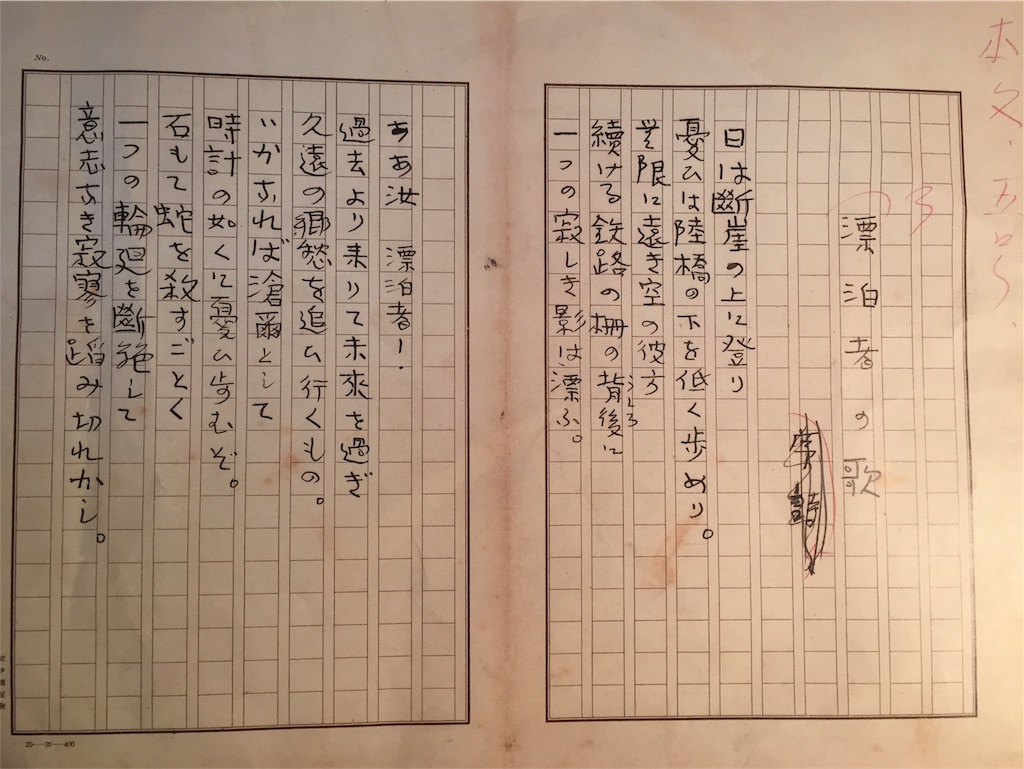 本文、五号、
3
漂泊者の歌
序詩
日は斷崖の上に登り
憂ひは陸橋の下を低く歩めり。
無限に遠き空の彼方
続ける鉄路の柵の背後に
うしろ
一つの寂しき影は漂ふ。
ああ汝 漂泊者!
過去より来りて未來を過ぎ
久遠の郷愁を追ひ行くもの。
いかなれば滄爾として
時計の如くに憂ひ歩むぞ。
石もて蛇を殺すごとく
一つの輪廻を斷絶して
意志なき寂寥を蹈み切れかし。
No.
20—20—400